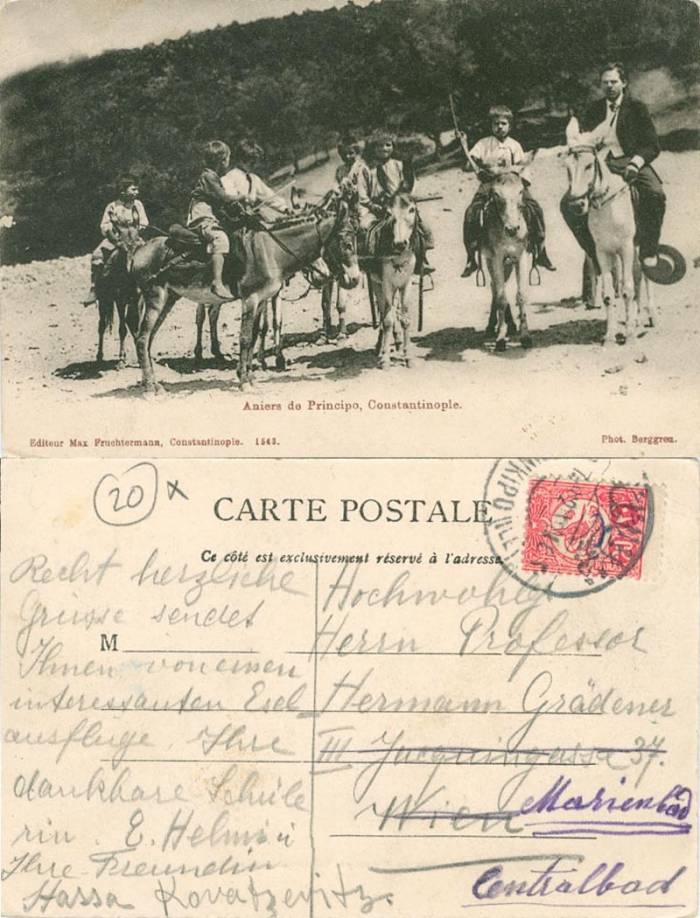 Aniers de Principo, Constantinople.
Editeur Max Fruchtermann, Constantinople. 1543.
Phot. Berggren.
20 x
CARTE POSTALE
Ce côté est exclusivement réservé à l'adresse.
M
Recht herzliche
Grüsse sendet
Ihnen von einen
interessanten Esel
ausfluge. Ihre
dankbare Schüle
rin. E. Helmi u
Ihre Freundin
Hassa Kovatzevitz.
Hochwohlg
Herrn Professor
Hermann Grädener
III Jacquingasse 37.
Wien Marienbad
Centralbad